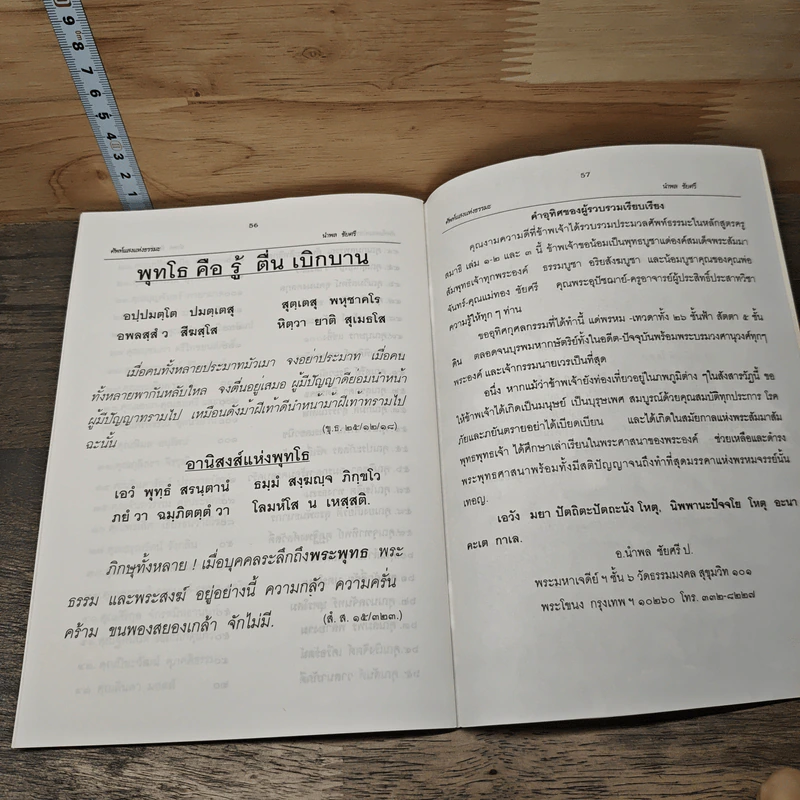 9
8
7
6
5
4
3
2
1
56
ศัพท์แสงแห่งธรรมะ นำพล ชัยศรี
พุทโธ คือ รู้ ตื่น เบิกบาน
อปฺปมตฺโต ปมตฺเตสุ สุตฺเตสุ พหุชาคโร
อพลสฺสํว สีฆสฺโส หิตฺวา ยาติ สุเมธโส
เมื่อคนทั้งหลายประมาทมัวเมา จงอย่าประมาท เมื่อคน
ทั้งหลายพากันหลับใหล จงตื่นอยู่เสมอ ผู้มีปัญญาดีย่อมนำหน้า
ผู้มีปัญญาทรามไป เหมือนดังม้าฝีเท้าดีนำหน้าม้าฝีเท้าทรามไป
ฉะนั้น (ขุ.ธ. ๒๕/๑๒/๑๘)
อานิสงส์แห่งพุทโธ
เอวํ พุทฺธํ สรนฺตานํ ธมฺมํ สงฺฆญฺจ ภิกฺขโว
ภยํ วา ฉมฺภิตตฺตํ วา โลมหํโส น เหสฺสติ.
ภิกษุทั้งหลาย ! เมื่อบุคคลระลึกถึงพระพุทธ พระ
ธรรม และพระสงฆ์ อยู่อย่างนี้ ความกลัว ความครั่น
คร้าม ขนพองสยองเกล้า จักไม่มี. (สํ. ส. ๑๕/๓๒๓.)
57
ศัพท์แสงแห่งธรรมะ นำพล ชัยศรี
คำอุทิศของผู้รวบรวมเรียบเรียง
คุณงามความดีที่ข้าพเจ้าได้รวบรวมประมวลศัพท์ธรรมะในหลักสูตรครู
สมาธิ เล่ม ๑-๒ และ ๓ นี้ ข้าพเจ้าขอน้อมเป็นพุทธบูชาแด่องค์สมเด็จพระสัมมา
สัมพุทธเจ้าทุกพระองค์ ธรรมบูชา อริยสังฆบูชา และน้อมบูชาคุณของคุณพ่อ
จันทร์-คุณแม่ทอง ชัยศรี คุณพระอุปัชฌาย์-ครูอาจารย์ผู้ประสิทธิ์ประสาทวิชา
ความรู้ให้ทุก ๆ ท่าน
ขออุทิศกุศลกรรมที่ได้ทำนี้ แด่พรหม -เทวดาทั้ง ๒๖ ชั้นฟ้า ลัตดา ๕ ชั้น
ดิน ตลอดจนบุรพมหากษัตริย์ทั้งในอดีต-ปัจจุบันพร้อมพระบรมวงศานุวงศ์ทุกๆ
พระองค์ และเจ้ากรรมนายเวรเป็นที่สุด
อนึ่ง หากแม้ว่าข้าพเจ้ายังท่องเที่ยวอยู่ในภพภูมิต่าง ๆในสังสารวัฏนี้ ขอ
ให้ข้าพเจ้าได้เกิดเป็นมนุษย์ เป็นบุรุษเพศ สมบูรณ์ด้วยคุณสมบัติทุกประการ โรค
ภัยและภยันตรายอย่าได้เบียดเบียน และได้เกิดในสมัยกาลแห่งพระสัมมาสัม
พุทธพุทธเจ้า ได้ศึกษาเล่าเรียนในพระศาสนาของพระองค์ ช่วยเหลือและดำรง
พระพุทธศาสนาพร้อมทั้งมีสติปัญญาจนถึงทำที่สุดมรรคาแห่งพรหมจรรย์นั้น
เทอญ.
เอวัง มยา ปัตถิตะปัตถะนัง โหตุ, นิพพานะปัจจโย โหตุ อะนา
คะเต กาเล.
อ.นำพล ชัยศรี ป.
พระมหาเจดีย์ ฯ ชั้น ๖ วัดธรรมมงคล สุขุมวิท ๑๐๑
พระโขนง กรุงเทพ ฯ ๑๐๒๖๐ โทร. ๓๓๒-๘๒๒๗